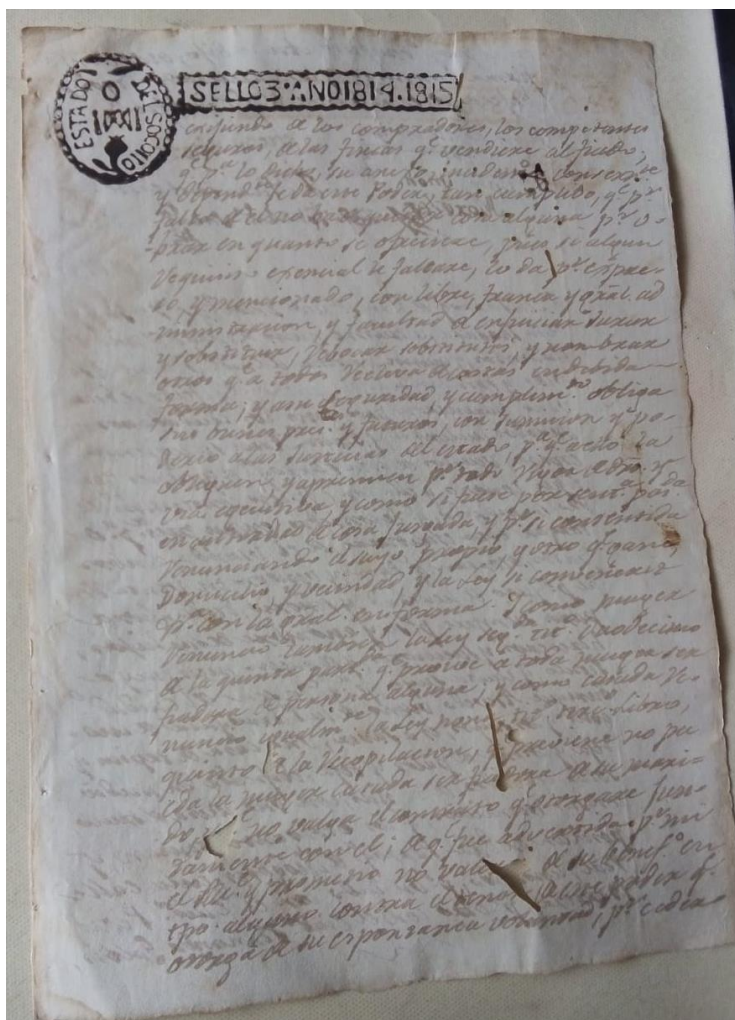 ESTADO DEL SOCOLLO
SELLO 3º AÑO 1814.1815
exijiendo de los compradores, los competentes
seguros, de las fincas q.e vendiere al fiado,
q.e p.a lo dicho, su anexo, incidente
y depend.te le da este Poder, tan cumplido, q.e p.r
falta de el no alguna p.r o-
brar en quanto se ofreciere, pues si algun
requisito esencial le faltare, lo da p.r expre-
so, y mencionado, con libre, franca y gral. ad
ministracion, y facultad de enjuiciar Jurar
y substituir, revocar substitutos, y nombrar
otros q.e a todos releva de costas en debida
forma; y a su seguridad, y cumplim.to obliga
sus bienes pres.tes y futuros, con sumision y po-
derio a las Justicias del estado, p.a q.e a ello la
obliguen y apremien p.r todo rigor de dro. y
via egecutiva, y como si fuese por sent.a pas.da
en autoridad de cosa Juzgada, y p.r si consentida
renunciando el suyo propio, y otro q.e gane,
Domicilio, y vecindad, y la Ley si convenerit
con la gral. en forma. Y como muger
renuncia tambien la Ley seg.da tit.o duodecimo
de la quinta part.da q.e proive a toda muger ser
fiadora de persona alguna, y como casada re-
nuncia igualm.te la Ley nona tit.o libro
quinto de la recopilacion, q.e previene no pu
eda la muger casada ser fiadora de su mari-
do ni valga el contrato q.e otorgare Jun-
tamente con el; de q.e fue advertida p.r mi
el Es.no y prometio no valerse de su benef.o en
tpo. alguno contra el tenor de este poder q.e
otorga de su espontanea voluntad, p.r ceder